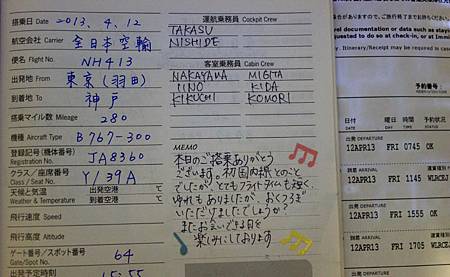 搭乗日 Date 2013. 4. 12
航空会社 Carrier 全日本空輸
便名 Flight No. NH413
出発地 From 東京(羽田)
到着地 To 神戸
搭乗マイル数 Mileage 280
機種 Aircraft Type B767-300
登録記号(機体番号) JA8360
Registration No.
クラス/座席番号 Y/39A
Class / Seat No.
天候と気温 出発空港 ℃
Weather & Temperature 到着空港 ℃
飛行速度 Speed
飛行高度 Altitude
ゲート番号/スポット番号 64
Gate/Spot No.
出発予定時刻 15:55
運航乗務員 Cockpit Crew
TAKASU
NISHIDE
客室乗務員 Cabin Crew
NAKAYAMA MIGITA
IINO KIDA
KIKUCHI KOMORI
MEMO
本日のご搭乗ありがとう
ございます。初国内線とのこと
でしたが、とてもフライトタイムも短く、
ゆれもありましたが、おくつろぎ
いただけましたでしょうか?
またお会いできる日を
楽しみにしております
がありますので、ご旅行終了までお
vel documentation or data such as
equested to do so at check-in, or at Immi
Itinerary/Receipt may be required in case
予約番号:
日付 曜日 時刻 予約状況
DATE DAY TIME STATUS
出発 DEPARTURE
12APR13 FRI 0745 OK
到着 ARRIVAL
12APR13 FRI 1145
出発 DEPARTURE
12APR13 FRI 1555 OK
到着 ARRIVAL
12APR13 FRI 1705
出発 DEPARTURE